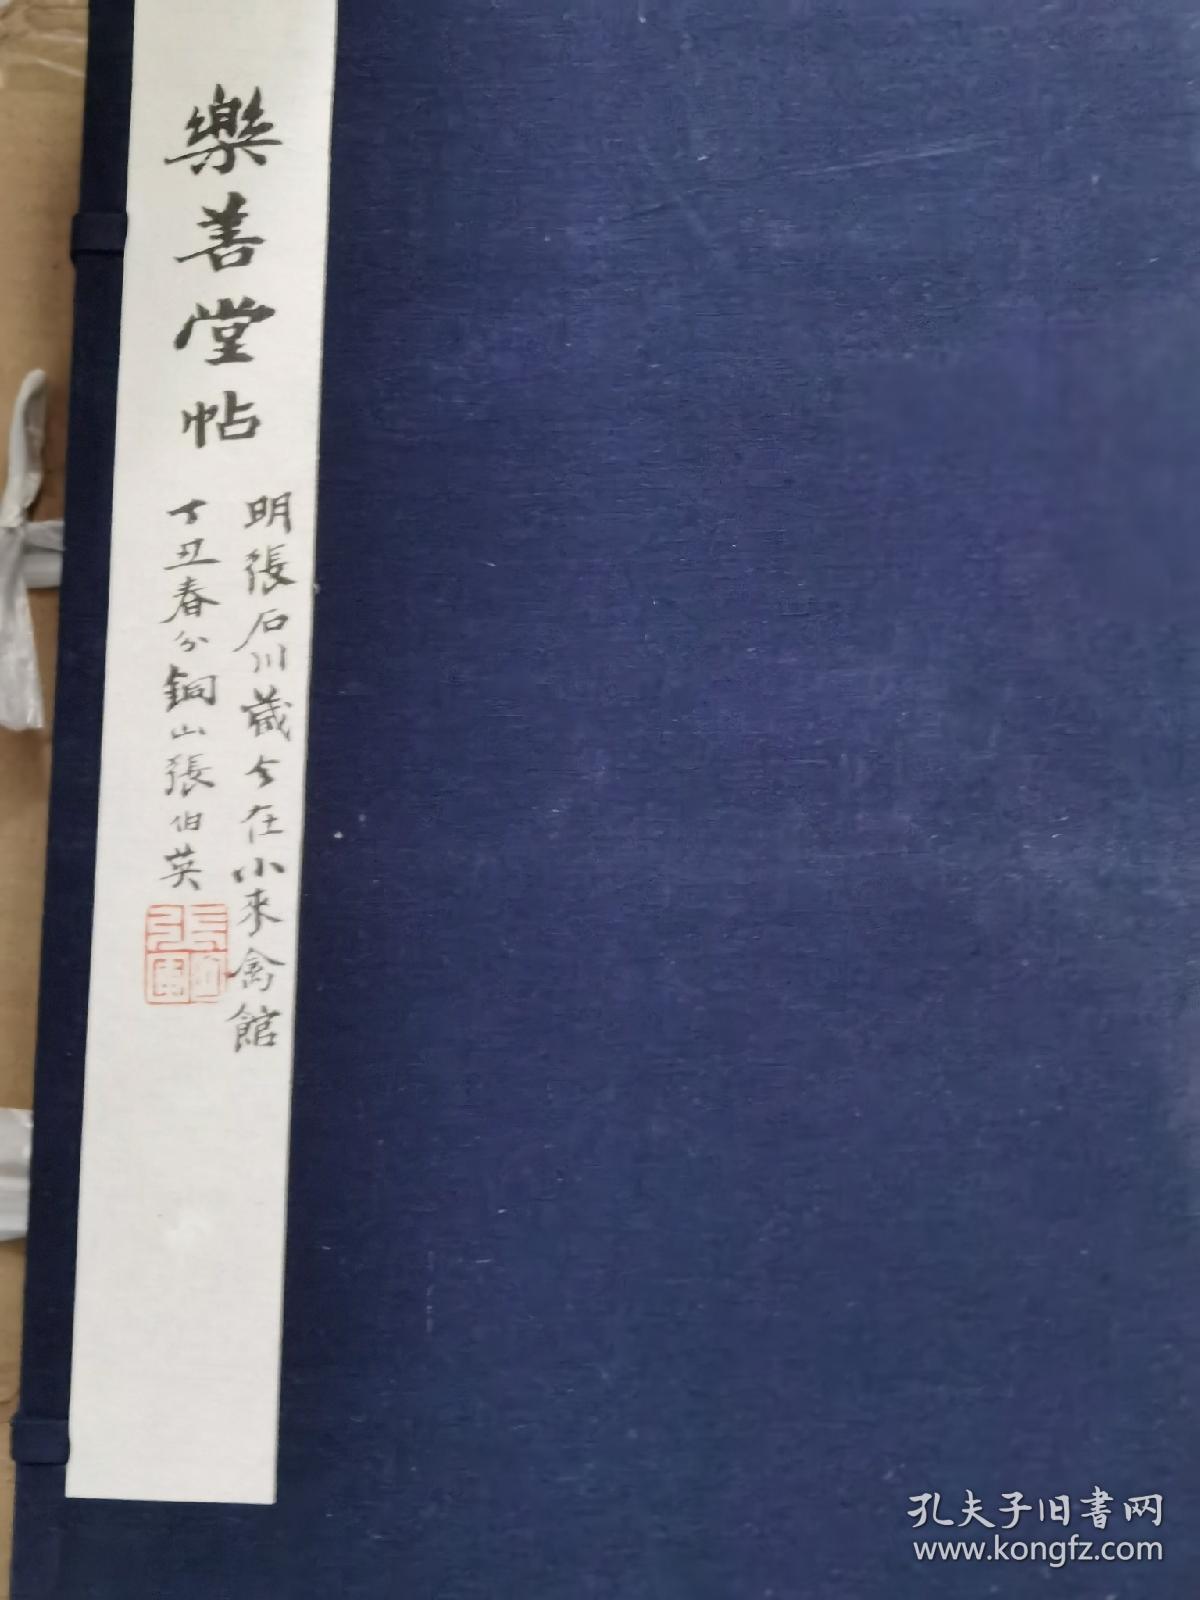 樂善堂帖
明張石川藏今在小來禽館
丁丑春分銅山張伯英
孔夫子旧书网
www.kongfz.com